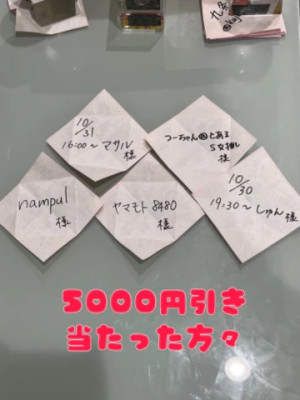 九条
10/31
16:00〜マサル
様
つーちゃん@とある
S女推し
様
nampul
様
ヤマモト8480
様
10/30
19:30〜しゅん様
5000円引き
当たった方々